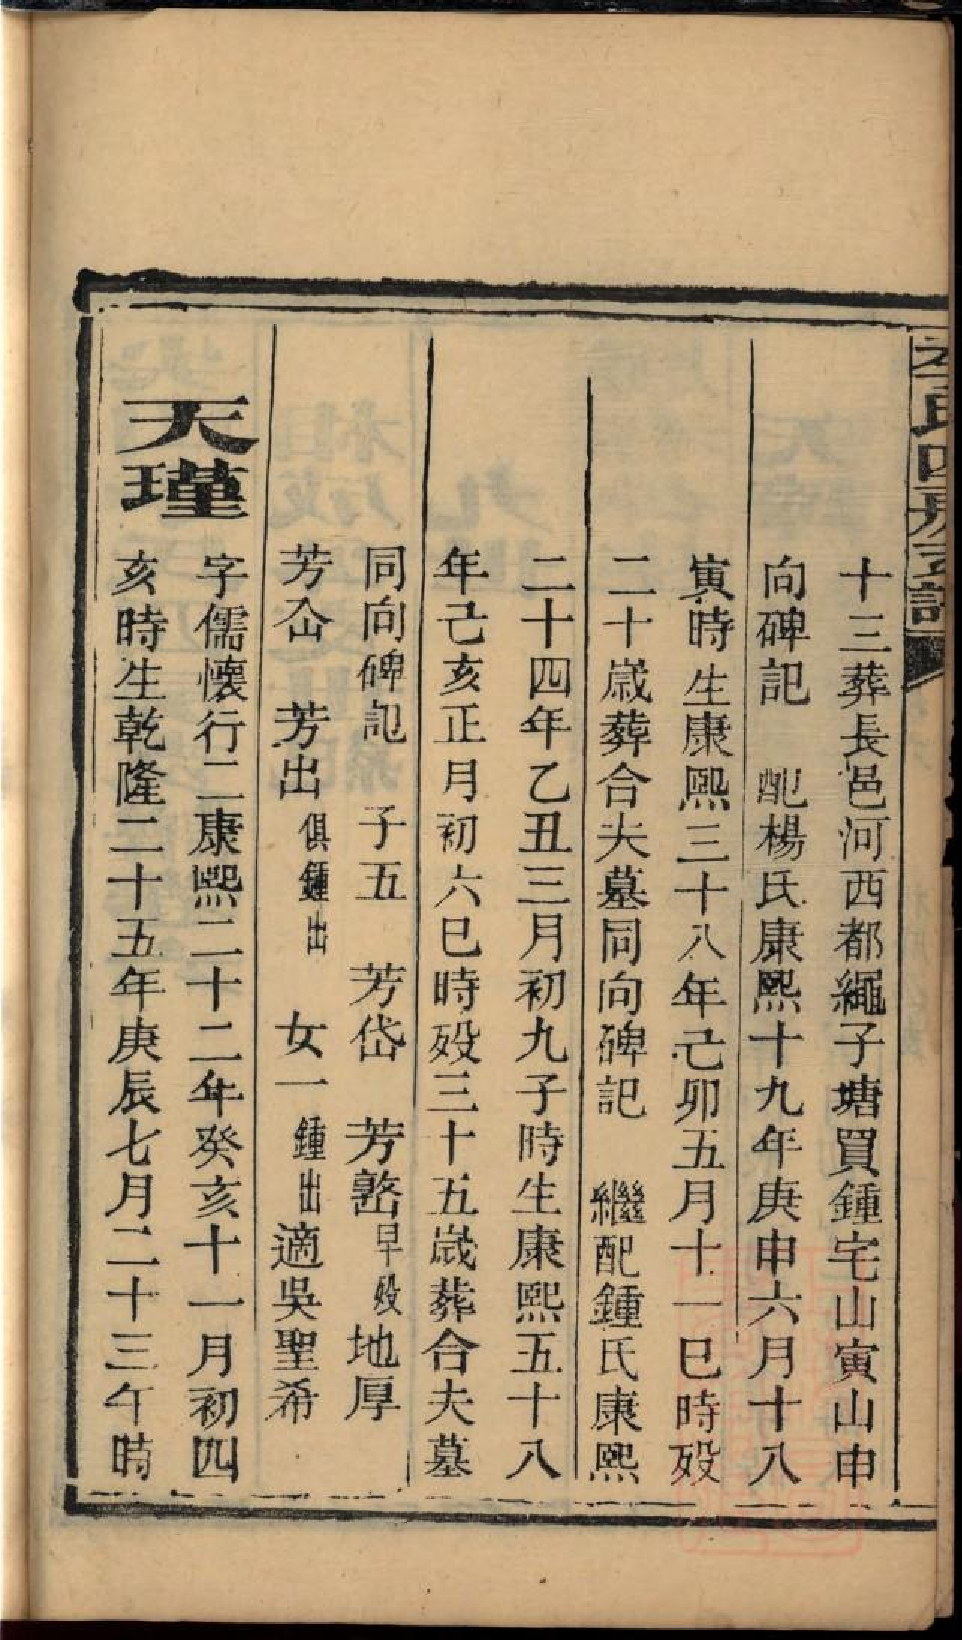 李氏四房支譜
十三葬長邑河西都繩子塘買鍾宅山寅山申
向碑記 配楊氏康熙十九年庚申六月十八
寅時生康熙三十八年己卯五月十一巳時歿
二十歲葬合夫墓同向碑記 繼配鍾氏康熙
二十四年乙丑三月初九子時生康熙五十八
年己亥正月初六巳時歿三十五歲葬合夫墓
同向碑記 子五 芳岱 芳嶅早歿地厚
芳㟃 芳出俱鍾出 女一鍾出適吳聖希
天瑾 字儒懷行二康熙二十二年癸亥十一月初四
亥時生乾隆二十五年庚辰七月二十三午時